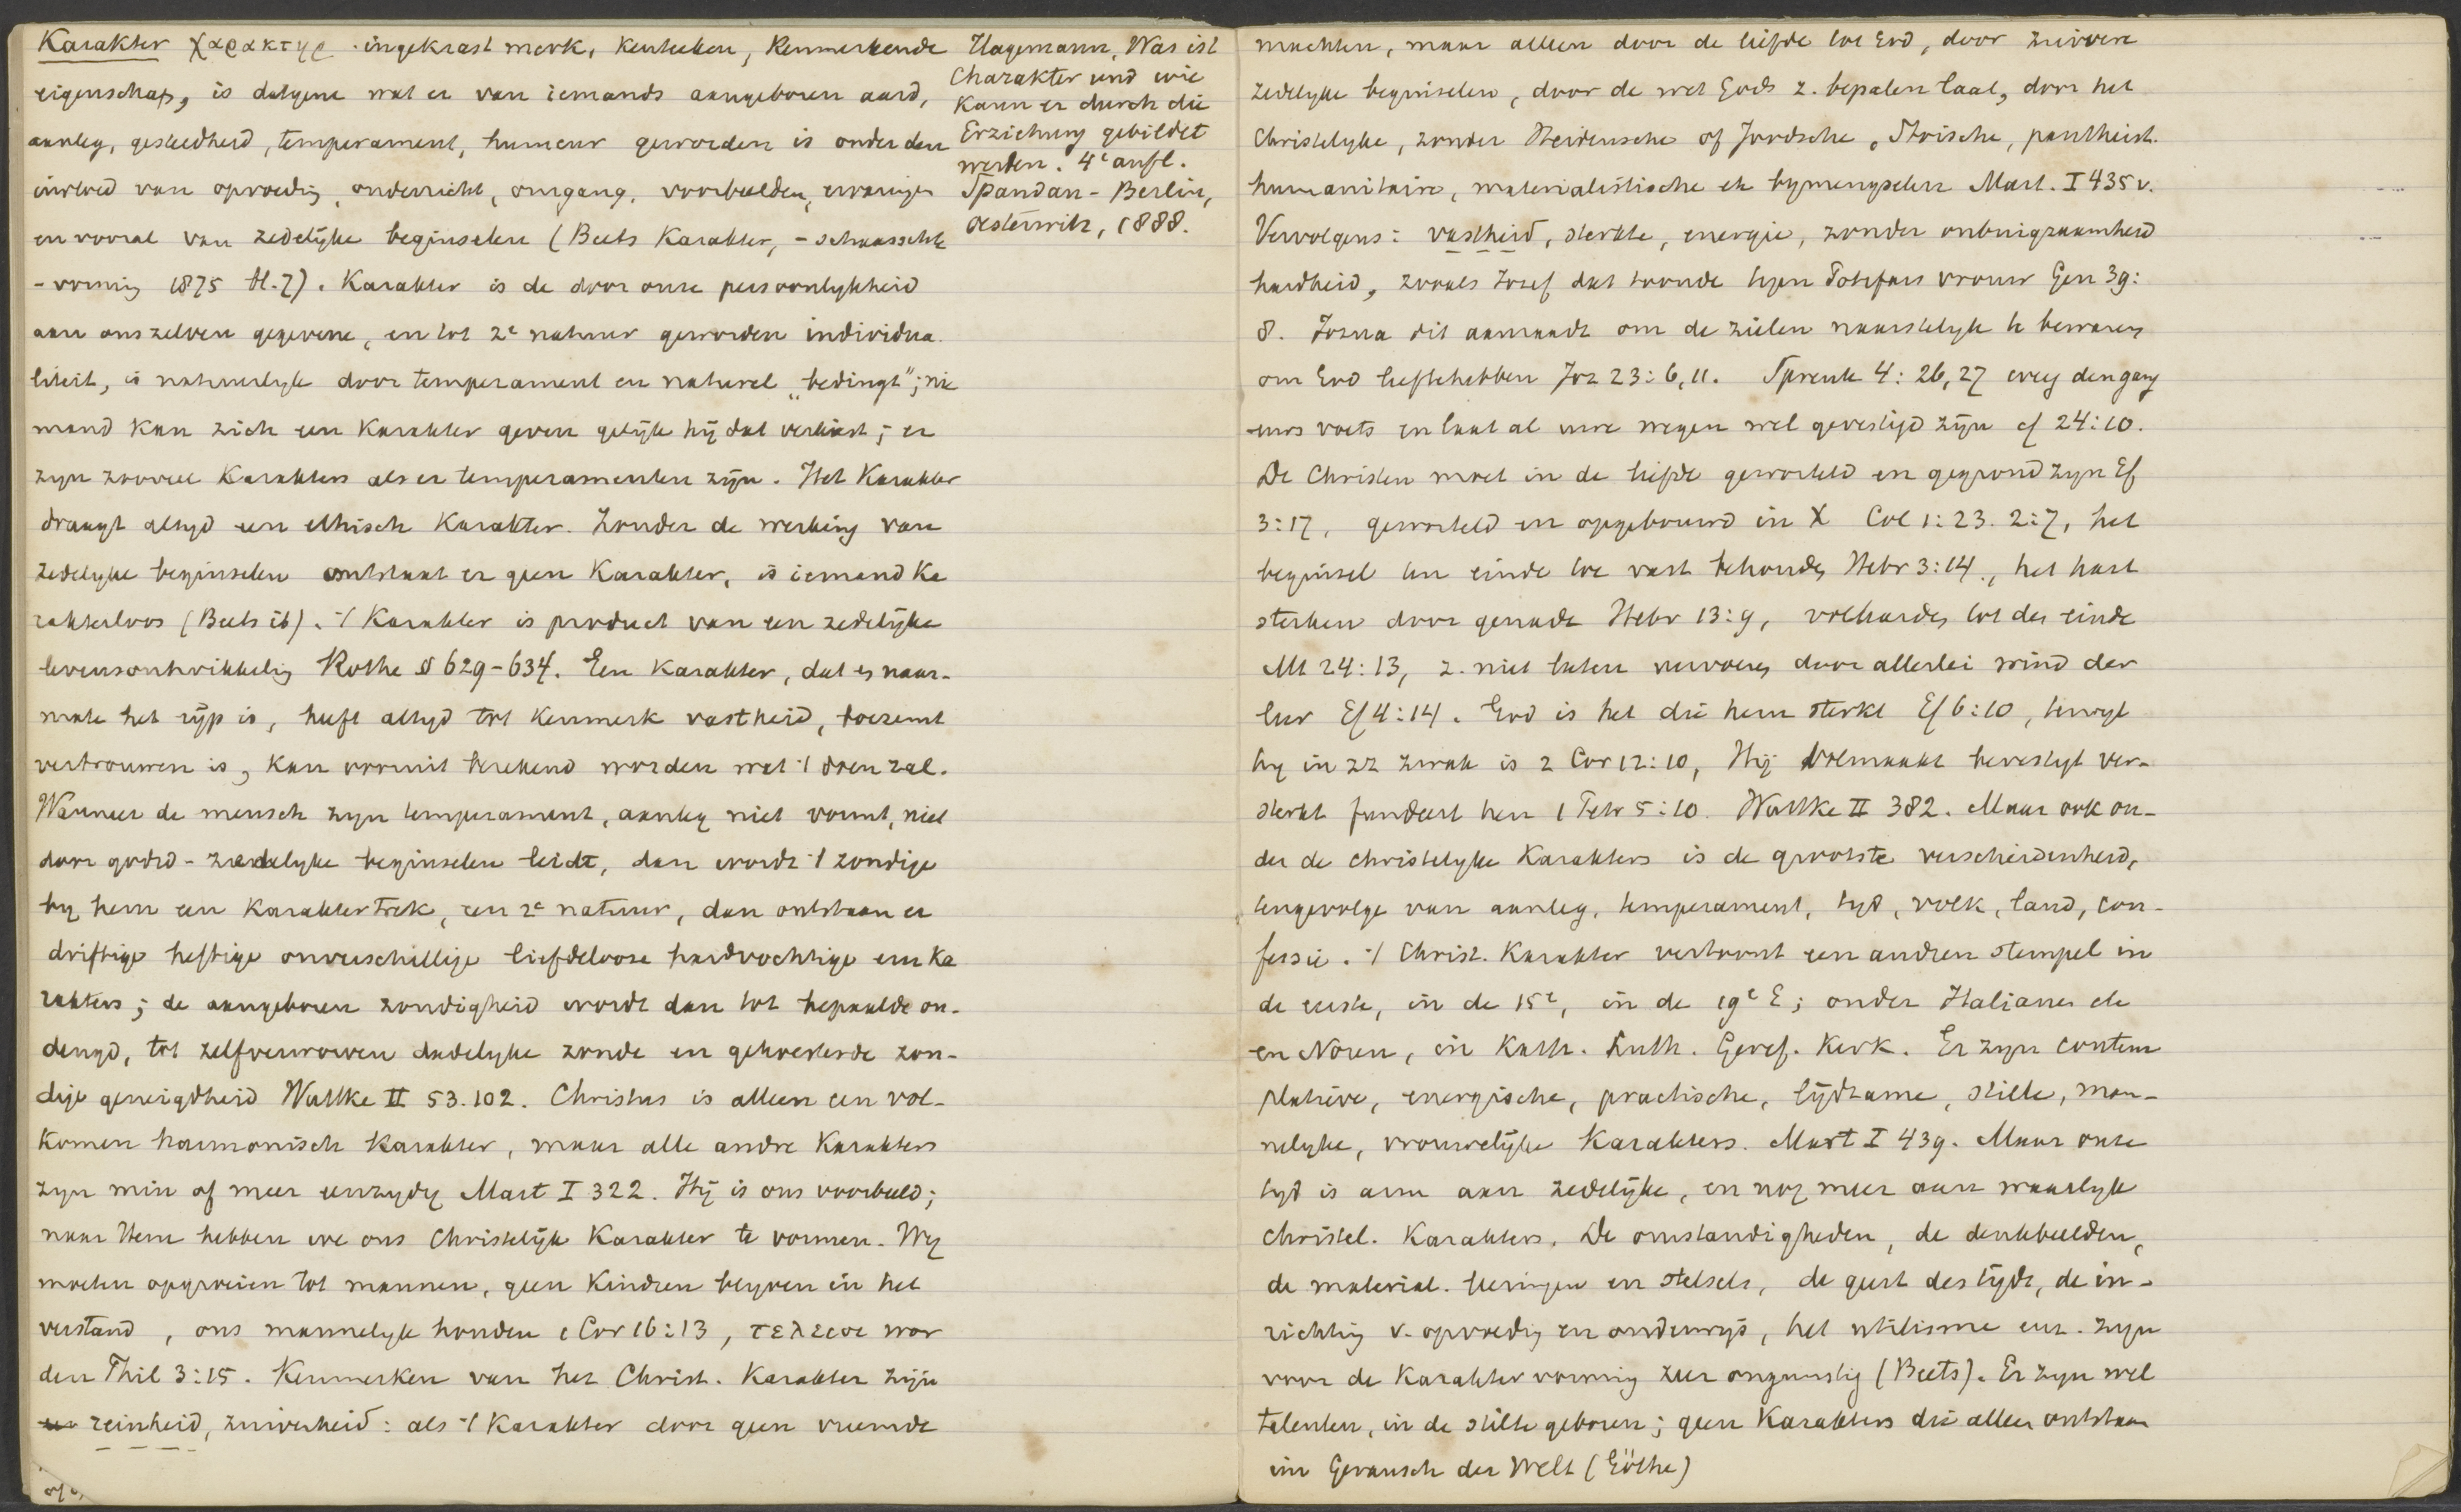 Karakter χαρακτηρ ingekrast merk, kenteeken, kenmerkende
eigenschap, is datgene wat er van iemands aangeboren aard,
aanleg, gesteldheid, temperament, humeur geworden is onder den
invloed van opvoeding, onderricht, omgang, voorbeelden, ervaringen
en vooral van zedelijke beginselen (Beets Karakter, -schaarschte
-vorming 1875 bl. 7). Karakter is de door onze persoonlykheid
aan ons zelven gegevene, en tot 2e natuur geworden individua-
liteit, is natuurlyk door temperament en naturel „bedingt"; nie
mand kan zich een karakter geven gelijk hij dat verkiest; er
zyn zooveel karakters als er temperamenten zijn. Het karakter
draagt altyd een ethisch karakter. Zonder de werking van
zedelyke beginselen ontstaat er geen karakter, is iemand ka
rakterloos (Beets ib). 't Karakter is product van een zedelijke
levensontwikkeling Rothe § 629-634. Een karakter, dat er naar-
mate het rijp is, heeft altyd tot kenmerk vastheid,
vertrouwen is, kan vooruit berekend worden wat 't doen zal.
Wanneer de mensch zyn temperament, aanleg niet vormt, niet
door godsd-zedelyke beginselen leidt, dan wordt 't zondige
by hem een karaktertrek, een 2e natuur, dan ontstaan er
driftige heftige onverschillige liefdelooze hardvochtige enz ka
rakters; de aangeboren zondigheid wordt dan tot bepaalde on-
deugd, tot zelfverworven dadelyke zonde en gekoesterde zon-
dige geneigdheid Wuttke II 53.102. Christus is alleen een vol-
komen harmonisch karakter, maar alle andre karakters
zyn min of meer eenzydig Mart I 322. Hij is ons voorbeeld;
naar Hem hebben we ons Christelijk karakter te vormen. Wy
moeten opgroeien tot mannen, geen kindren blyven in het
verstand, ons mannelyk houden 1 Cor 16:13, τελειοι wor
den Phil 3:15. Kenmerken van het Christ. karakter zijn
reinheid, zuiverheid: als 't karakter door geen vreemde
Hagemann, Was ist
Charakter und wie
kann er durch die
Erziehung gebildet
werden. 4e aufl.
Spandau-Berlin,
Oesterwitz, 1888.
machten, maar alleen door de liefde tot God, door zuivere
zedelyke beginselen, door de wet Gods z. bepalen laat, door het
Christelyke, zonder Heidensche of Joodsche, Stoische, pantheist.
humanitaire, materialistische etc bymengselen Mart. I 435 v.
Vervolgens: vastheid, sterkte, energie, zonder onbuigzaamheid
hardheid, zooals Jozef dat toonde tegen Potifars vrouw Gen 39:
8. Jozua dit aanraadt om de zielen naarstelyk te bewaren
om God lief te hebben Joz 23:6,11. Spreuk 4:26,27 weeg den gang
uws voets en laat al uwe wegen wel gevestigd zijn cf 24:10.
De Christen moet in de liefde geworteld en gegrond zyn Ef
3:17, geworteld en opgebouwd in X Col 1:23. 2:7, het
beginsel ten einde toe vast behouden Hebr 3:14, het hart
sterken door genade Hebr 13:9, volharden tot des einde
Mt 24:13, z. niet laten vervoeren door allerlei wind der
leer Ef 4:14. God is het die hem sterkt Ef 6:10, terwyl
hy in zz zwak is 2 Cor 12:10, Hij volmaakt bevestigt ver-
sterkt fundeert hen 1 Petr 5:10. Wuttke II 382. Maar ook on-
der de christelyke karakters is de grootste verscheidenheid,
tengevolge van aanleg, temperament, tyd, volk, land, con-
fessie. 't Christ. karakter vertoont een andren stempel in
de eerste, in de 15e, in de 19e E; onder Italianen etc
en Noren, in Kath. Luth. Geref. Kerk. Er zyn contem
platieve, energische, practische, lijdzame, stille, man-
nelyke, vrouwelijke karakters. Mart I 439. Maar onze
tyd is arm aan zedelijke, en nog meer aan waarlyk
christel. karakters. De omstandigheden, de denkbeelden,
de material. leeringen en stelsels, de geest des tijds, de in-
richting v. opvoeding en onderwys, het utilisme enz. zyn
voor de karaktervorming zeer ongunstig (Beets). Er zyn wel
talenten, in de stilte geboren; geen karakters die alleen ontstaan
im Geräusch der Welt (Göthe)